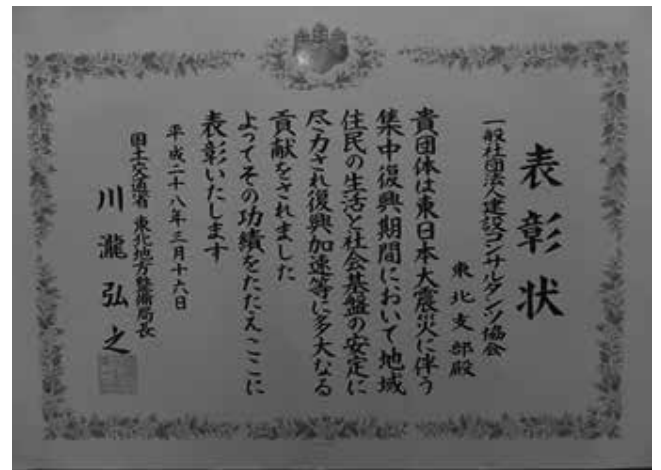 表彰状
一般社団法人建設コンサルタンツ協会
東北支部殿
貴団体は東日本大震災に伴う
集中復興期間において地域
住民の生活と社会基盤の安定に
尽力され復興加速等に多大なる
貢献をされました
よってその功績をたたえここに
表彰いたします
平成二十八年三月十六日
国土交通省 東北地方整備局長
川瀧弘之